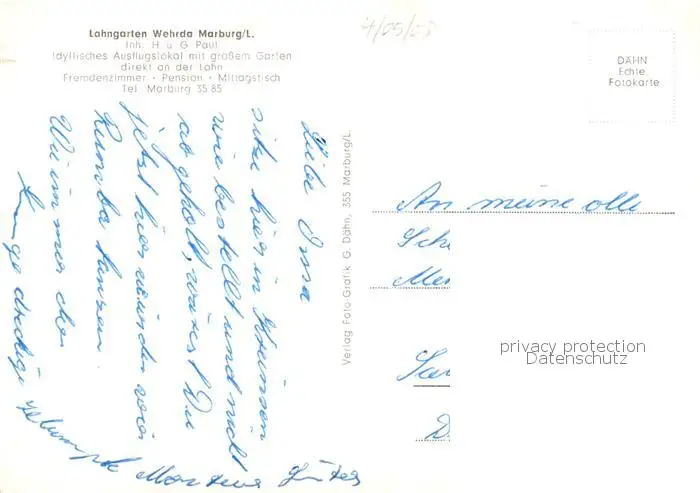 Lahngarten Wehrda Marburg/L.
Inh. H u G Paul
Idyllisches Ausflugslokal mit großem Garten
direkt an der Lahn
Fremdenzimmer · Pension · Mittagstisch
Tel. Marburg 35 85
4/05/05
DÄHN
Echte
Fotokarte
Liebe Oma
sitze hier in
wie bestellt und nicht
abgeholt, wärest Du
jetzt hier würden wir
Rumba tanzen.
Wie immer der
Verlag Foto-Grafik G. Dähn, 355 Marburg/L.
An meine olle
Sch
Me
Sa
D
privacy protection
Datenschutz